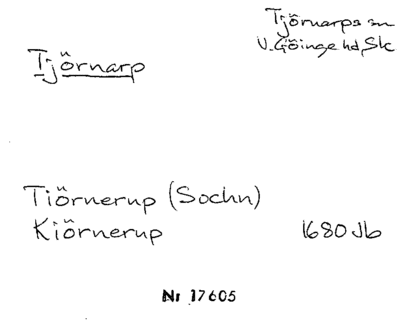 Tjörnarp
Tjörnarps sn
V. Göinge hd, Sk
Tiörnerup (Sochn)
Kiörnerup 1680 Jb
Nr 17605